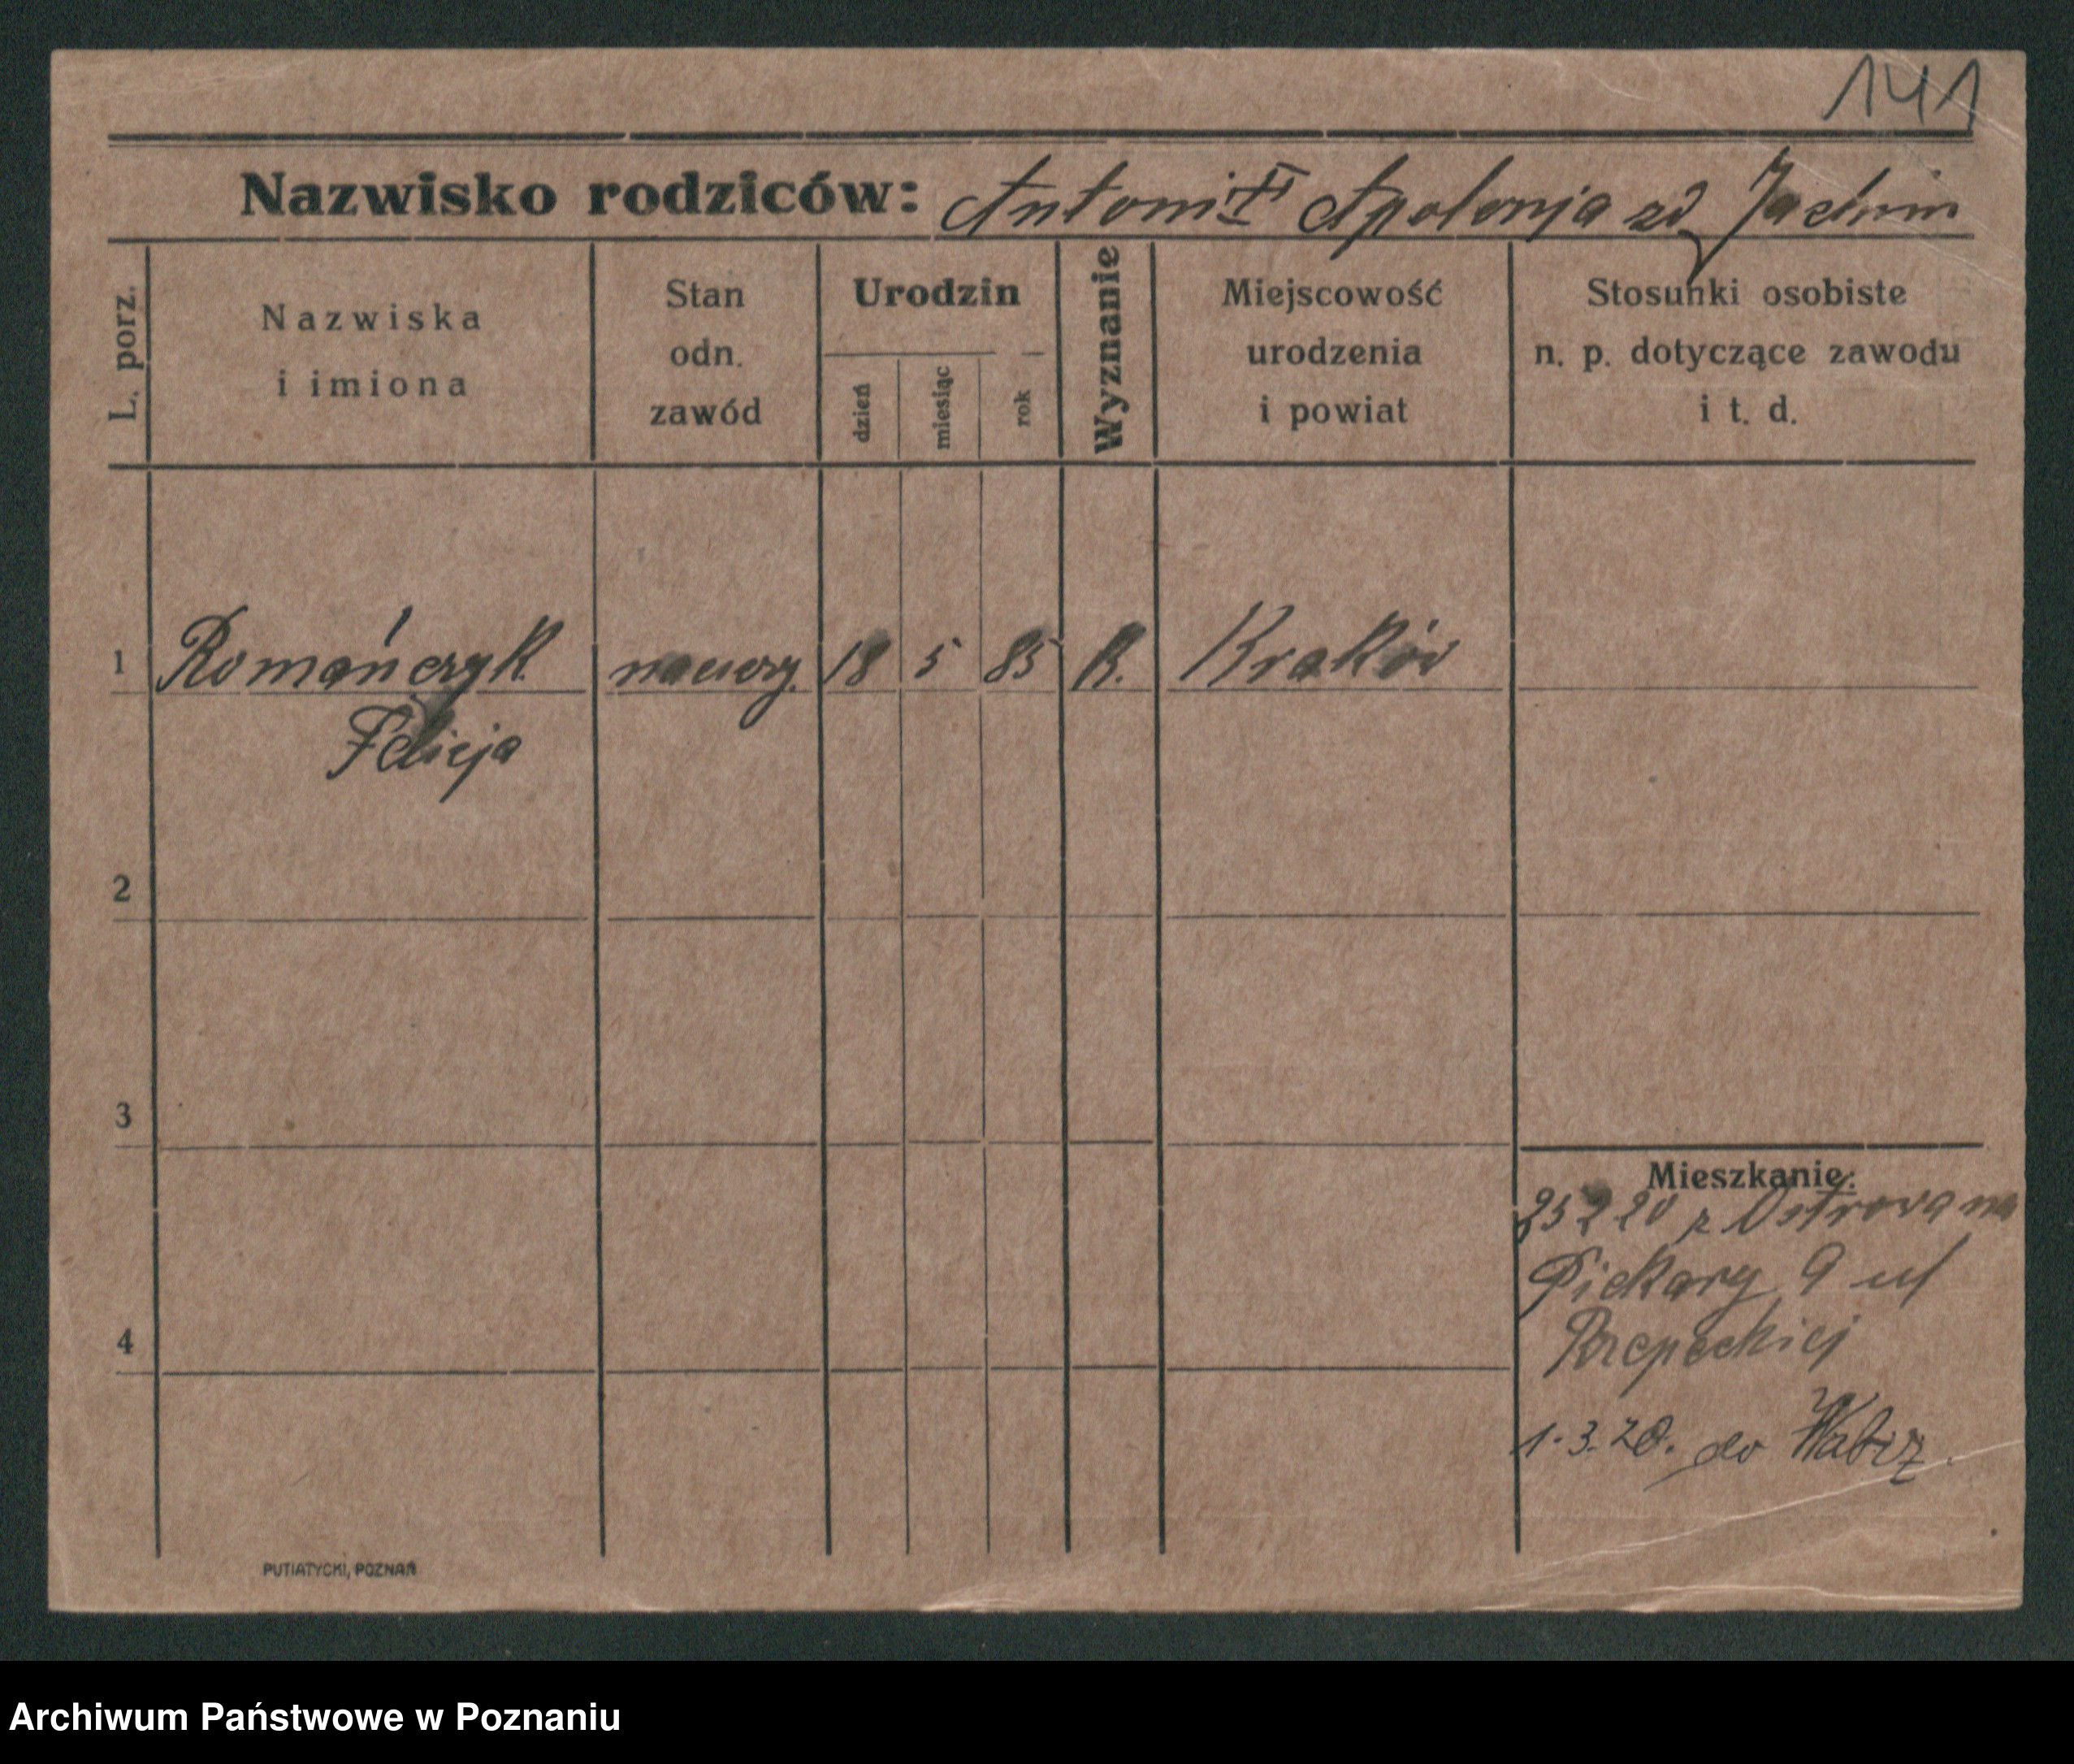 141
Nazwisko rodziców: Antoni Apolonja zd Jachim
L. porz.
Nazwiska
i imiona
Stan
odn.
zawód
Urodzin
dzień
miesiąc
rok
Wyznanie
Miejscowość
urodzenia
i powiat
Stosunki osobiste
n. p. dotyczące zawodu
i t. d.
1 Romańczyk naucz. 18 5 85 R. Kraków
Felicja
2
3
4
Mieszkanie:
25 2 20 z Ostrowa na
Piekary 9 u
Rzepeckiej
1.3.20. do
PUTIATYCKI, POZNAŃ
Archiwum Państwowe w Poznaniu